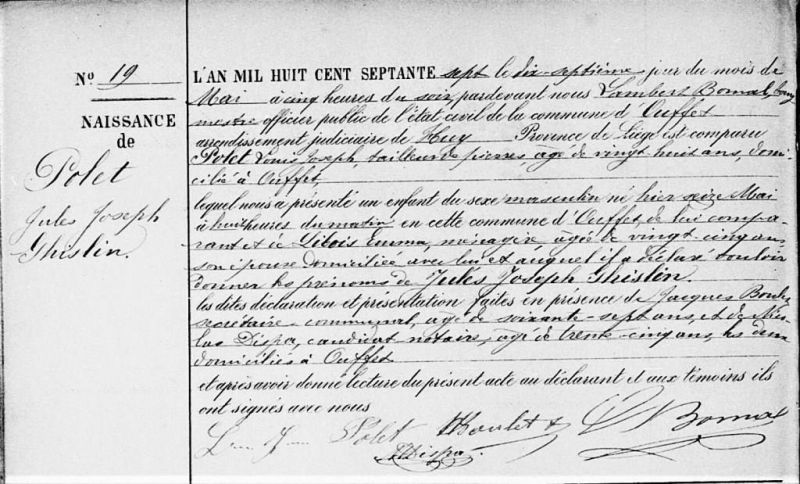 N° 19
NAISSANCE
de
Polet
Jules Joseph
Ghislin.
L'AN MIL HUIT CENT SEPTANTE sept le dix-septième jour du mois de
Mai à cinq heures du soir, pardevant nous Lambert Bomal, bourg
mestre officier public de l'état civil de la commune d'Ouffet
arrondissement judiciaire de Huy Province de Liége est comparu
Polet Louis Joseph, tailleur de pierres âgé de vingt huit ans, domi-
cilié à Ouffet,
lequel nous a présenté un enfant du sexe masculin né hier seize Mai
à huit heures du matin en cette commune d'Ouffet, de lui compa-
rant et de Libois Emma, ménagère âgée de vingt-cinq ans
son épouse domiciliée avec lui et auquel il a déclaré vouloir
donner les prénoms de Jules Joseph Ghislin.
les dites déclaration et présentation faites en présence de Jacques Boulet
secrétaire communal, âgé de soixante-sept ans, et de
Dispa, candidat notaire, âgé de trente-cinq ans, les deux
domiciliés à Ouffet
et après avoir donné lecture du présent acte au déclarant et aux témoins ils
ont signés avec nous
L J Polet Boulet Bomal
Dispa.